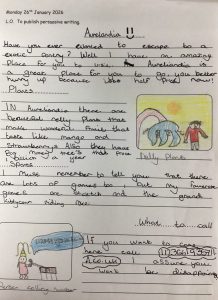 Monday 26th January 2026
L.O. To publish persuasive writing.
Aurelandia
Have you ever wanted to escape to a
exotic country? Well I have an amazing
place for you to visit. Aurelandia is
a great place for you to go, you better
hurry up because its half price now!
Plants
IN Aurelandia there are
beautiful nelly plants that
make wonderful fruit that
taste like mango and
Strawberrys. Also they have
money trees that grow
a year
Sports
I must remember to tell you that there
are lots of games too, but my favourite
are and the grand
riding
Nelly Plants
What to call
If you want to come
here call
I assure you
wont be disappoint
Person calling number